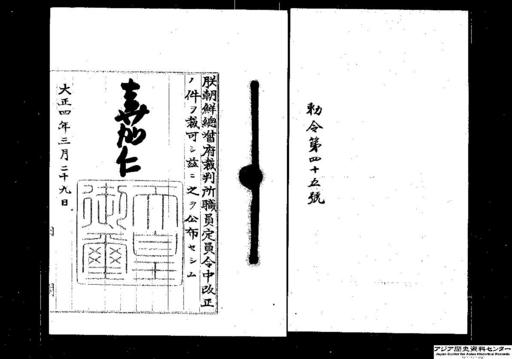 勅令第四十五號
朕朝鮮總督府裁判所職員定員令中改正
ノ件ヲ裁可シ茲ニ之ヲ公布セシム
嘉仁
天皇御璽
大正四年三月二十九日
アジア歴史資料センター
Japan Center for Asian Historical Records